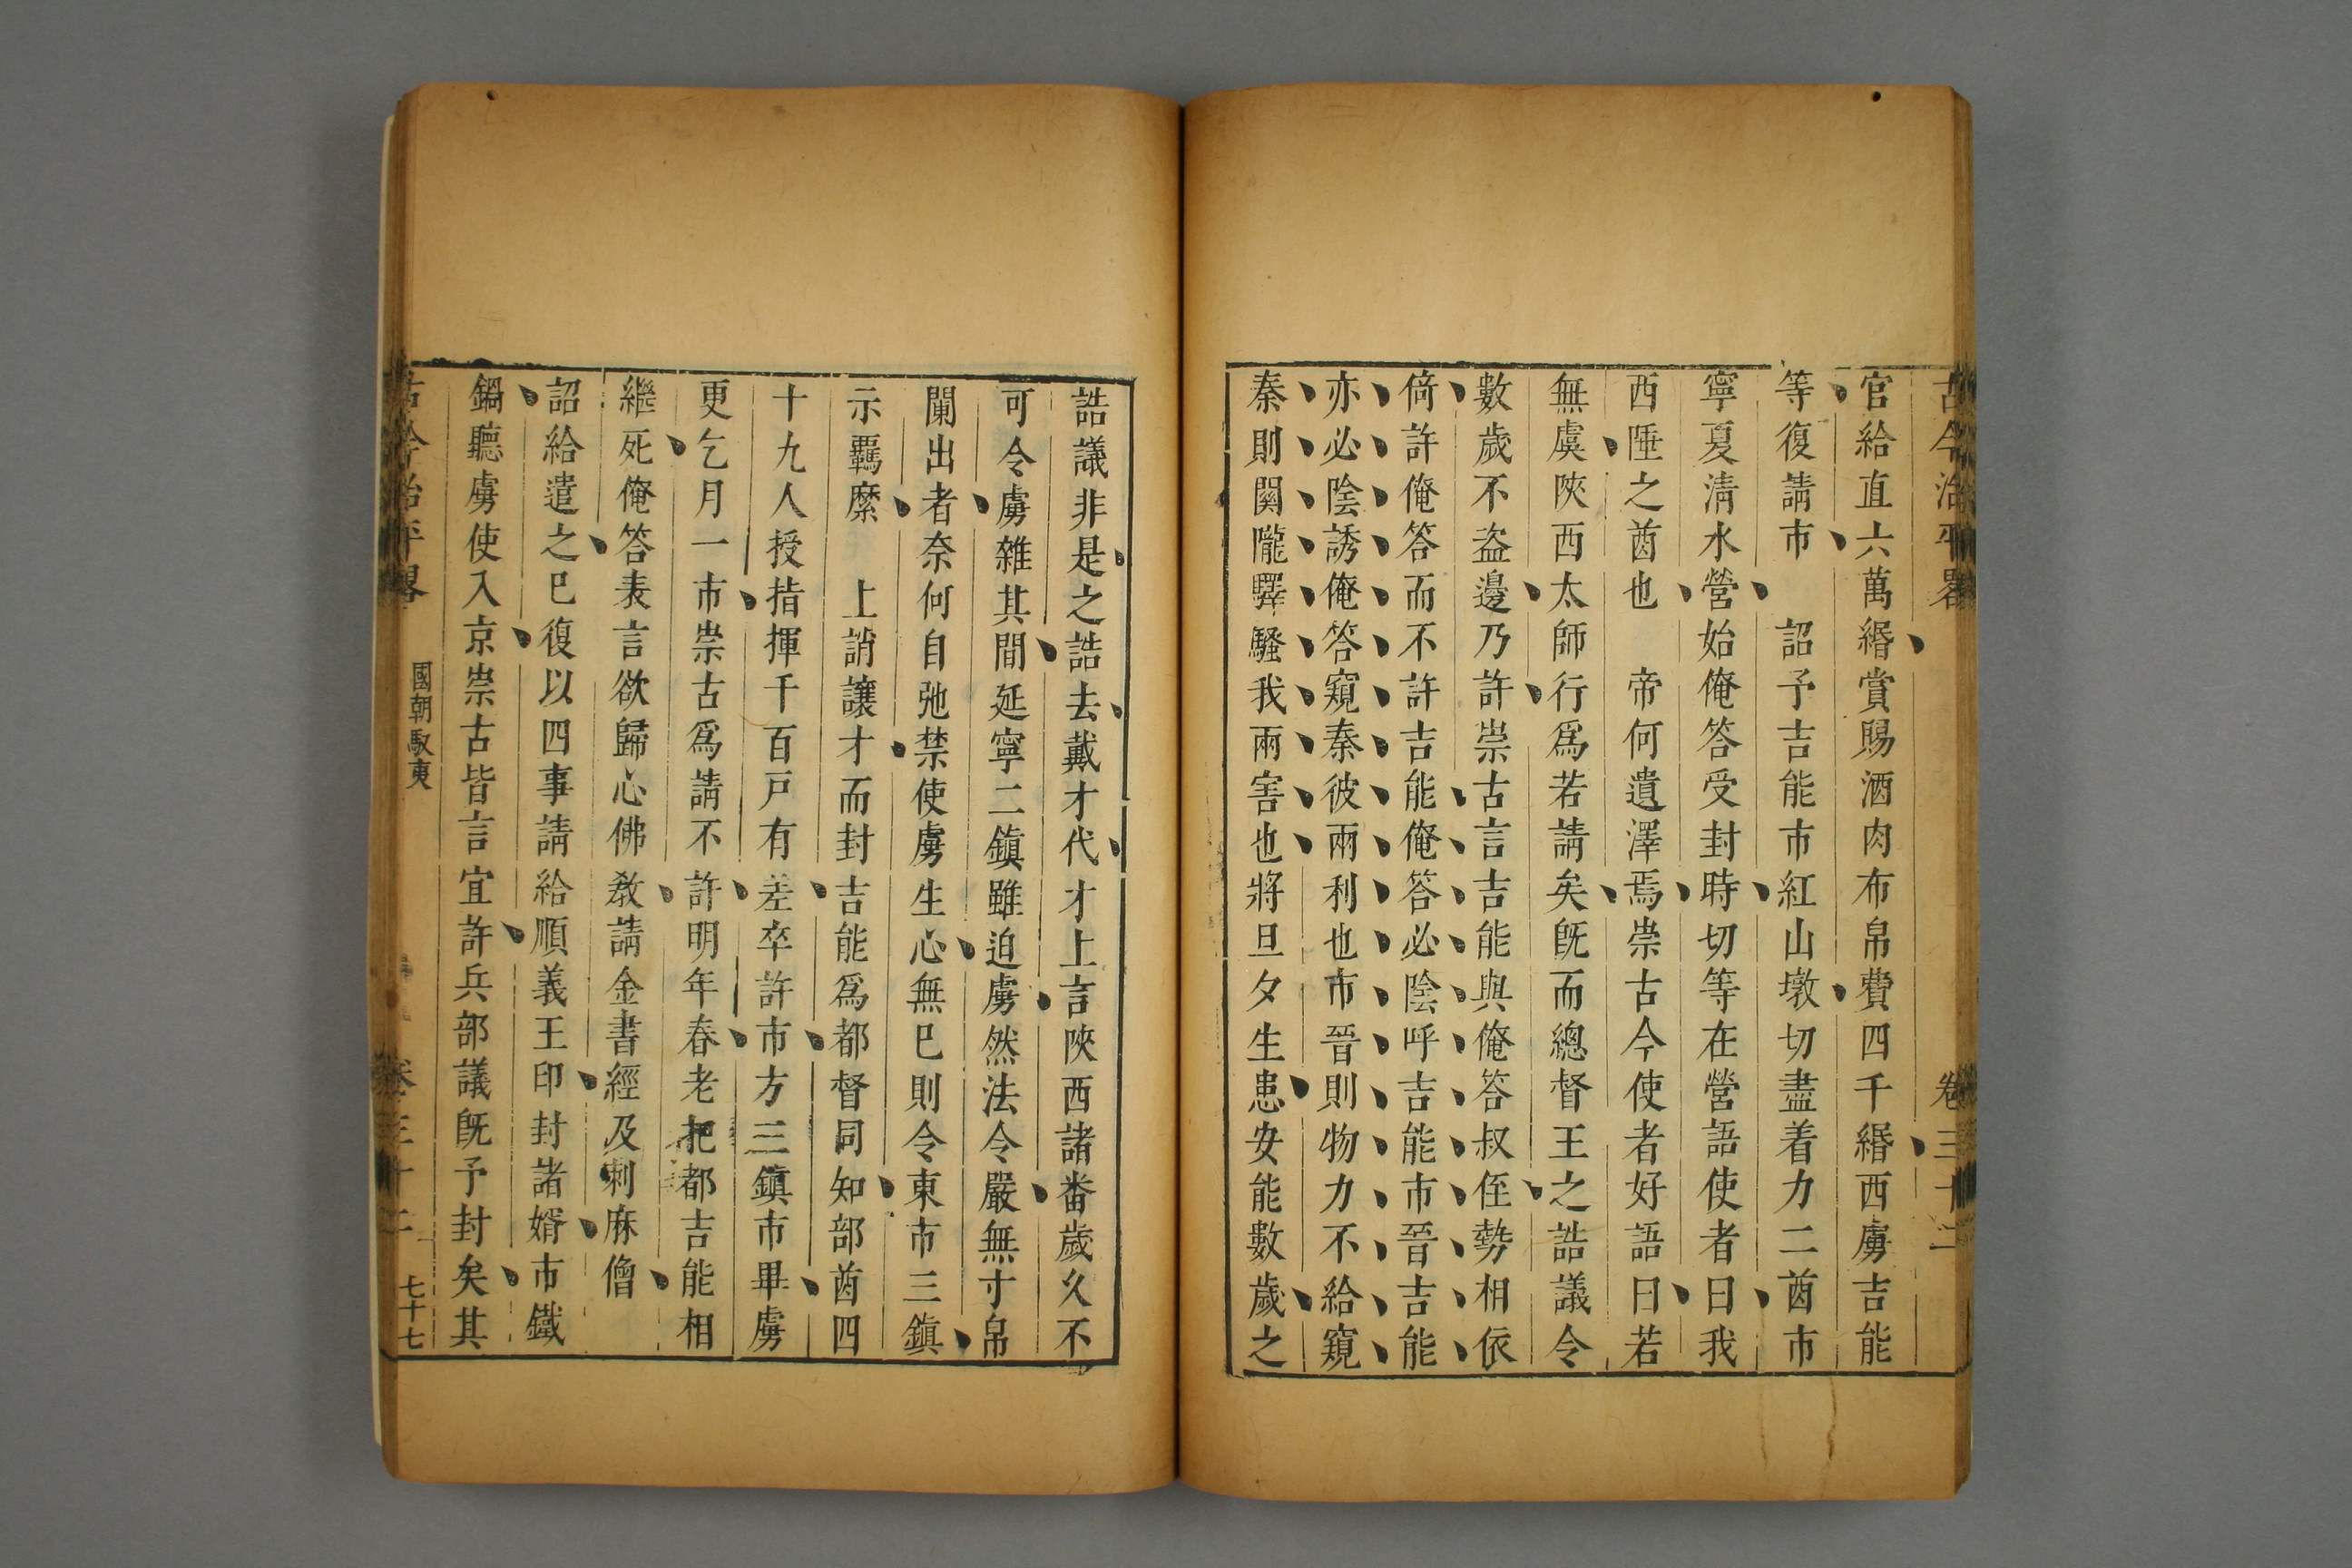 古今治平畧 卷三十二
官給直六萬緡賞賜酒肉布帛費四千緡西虜吉能
等復請市 詔予吉能市紅山墩切盡着力二酋市
寧夏淸水營始俺答受封時切等在營語使者曰我
西陲之酋也 帝何遺澤焉崇古今使者好語曰若
無虞陝西太師行爲若請矣旣而總督王之誥議令
數歲不盗邊乃許崇古言吉能與俺答叔侄勢相依
倚許俺答而不許吉能俺答必陰呼吉能市晉吉能
亦必陰誘俺答窺秦彼兩利也市晉則物力不給窺
秦則關隴驛騷我兩害也將旦夕生患安能數歲之
誥議非是之誥去戴才代才上言陝西諸番歲久不
可令虜雜其間延寧二鎮雖迫虜然法令嚴無寸帛
闌出者奈何自弛禁使虜生心無巳則令東市三鎮
示羈縻 上誚讓才而封吉能爲都督同知部酋四
十九人授指揮千百戸有差卒許市方三鎮市畢虜
更乞月一市崇古爲請不許明年春老把都吉能相
繼死俺答表言欲歸心佛敎請金書經及剌麻僧
詔給遣之巳復以四事請給順義王印封諸婿市鐵
鍋聽虜使入京崇古皆言宜許兵部議旣予封矣其
古今治平畧 國朝馭夷 卷三十二 七十七